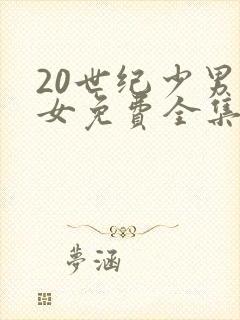 20世纪少男
女免费全集
夢涵